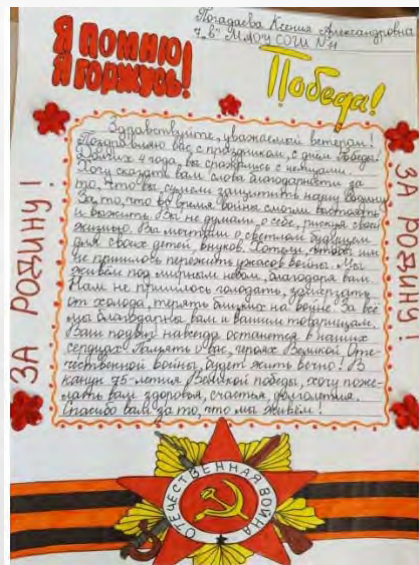 Погадаева Ксения Александровна
7 „в" МАОУ СОШ №11
Я ПОМНЮ!
Я ГОРЖУСЬ!
Победа!
Здравствуйте, уважаемый ветеран!
Поздравляю вас с праздником, с днём Победы!
Долгих 4 года, вы сражались с немцами.
Хочу сказать вам слова благодарности за
то, что вы сумели защитить нашу Родину.
За то, что во время войны смогли выстоять
и выжить. Вы не думали, о себе, рискуя своей
жизнью. Вы мечтали о светлом будущем
для своих детей, внуков. Хотели, чтобы им
не пришлось пережить ужасов войны. Мы
живём под мирным небом, благодаря вам.
Нам не пришлось голодать, замерзать
от холода, терять близких на войне. За всё
мы благодарны вам и вашим товарищам.
Ваш подвиг навсегда останется в наших
сердцах! Память о вас, героях Великой Оте-
чественной войны, будет жить вечно! В
канун 75-летия Великой победы, хочу поже-
лать вам здоровья, счастья, долголетия.
Спасибо вам за то, что мы живём!
ЗА РОДИНУ!
ЗА РОДИНУ!
ОТЕЧЕСТВЕННАЯ ВОЙНА